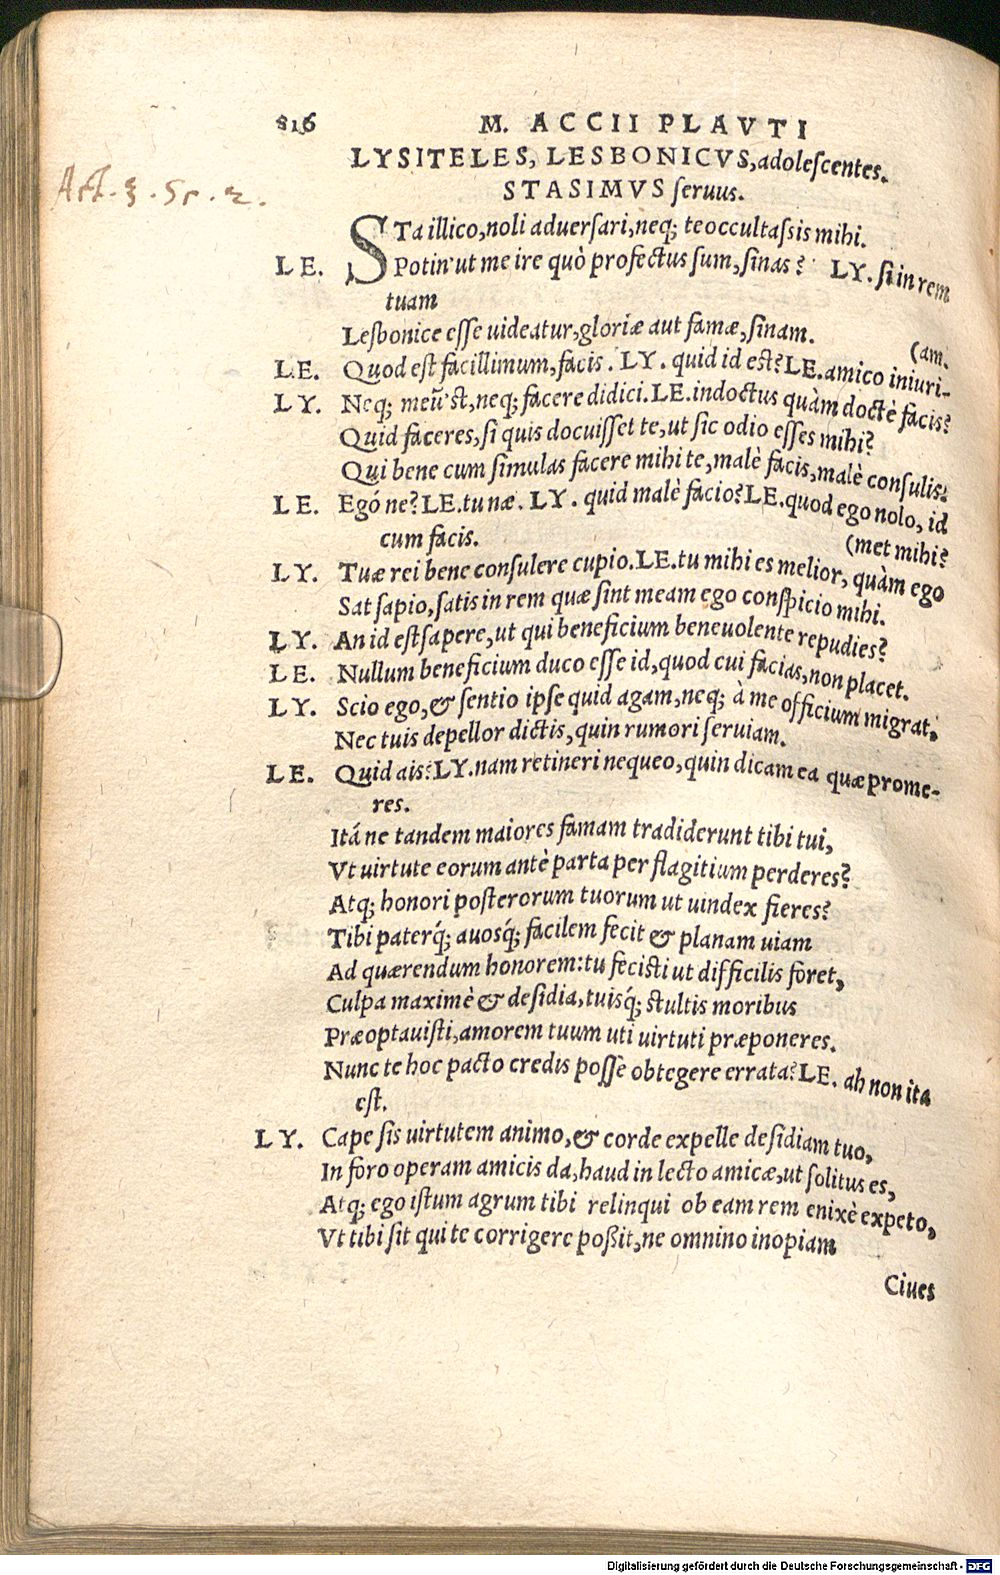 816 M. ACCII PLAVTI
LYSITELES, LESBONICVS, adolescentes.
STASIMVS seruus.
Act. 3. Sc. 2.
STa illico, noli aduersari, neq; te occultassis mihi.
LE. Potin' ut me ire quò profectus sum, sinas? LY. si in rem
tuam
Lesbonice esse uideatur, gloriæ aut famæ, sinam.
(am.
LE. Quod est facillimum, facis. LY. quid id est? LE. amico iniuri-
LY. Neq; meū'st, neq; facere didici. LE. indoctus quàm doctè facis?
Quid faceres, si quis docuisset te, ut sic odio esses mihi?
Qui bene cum simulas facere mihi te, malè facis, malè consulis.
LE. Egó ne? LE. tu næ. LY. quid malè facio? LE. quod ego nolo, id
cum facis.
(met mihi?
LY. Tuæ rei bene consulere cupio. LE. tu mihi es melior, quàm ego
Sat sapio, satis in rem quæ sint meam ego conspicio mihi.
LY. An id est sapere, ut qui beneficium beneuolente repudies?
LE. Nullum beneficium duco esse id, quod cui facias, non placet.
LY. Scio ego, & sentio ipse quid agam, neq; à me officium migrat,
Nec tuis depellor dictis, quin rumori seruiam.
LE. Quid ais? LY. nam retineri nequeo, quin dicam ea quæ prome-
res.
Itá ne tandem maiores famam tradiderunt tibi tui,
Vt uirtute eorum antè parta per flagitium perderes?
Atq; honori posterorum tuorum ut uindex fieres?
Tibi paterq́; auosq́; facilem fecit & planam uiam
Ad quærendum honorem: tu fecisti ut difficilis foret,
Culpa maximè & desidia, tuisq́; stultis moribus
Præoptauisti, amorem tuum uti uirtuti præponeres.
Nunc te hoc pacto credis posse obtegere errata? LE. ah non ita
est.
LY. Cape sis uirtutem animo, & corde expelle desidiam tuo,
In foro operam amicis da, haud in lecto amicæ, ut solitus es,
Atq; ego istum agrum tibi relinqui ob eam rem enixè expeto,
Vt tibi sit qui te corrigere poßit, ne omnino inopiam
Ciues
Digitalisierung gefördert durch die Deutsche Forschungsgemeinschaft - DFG